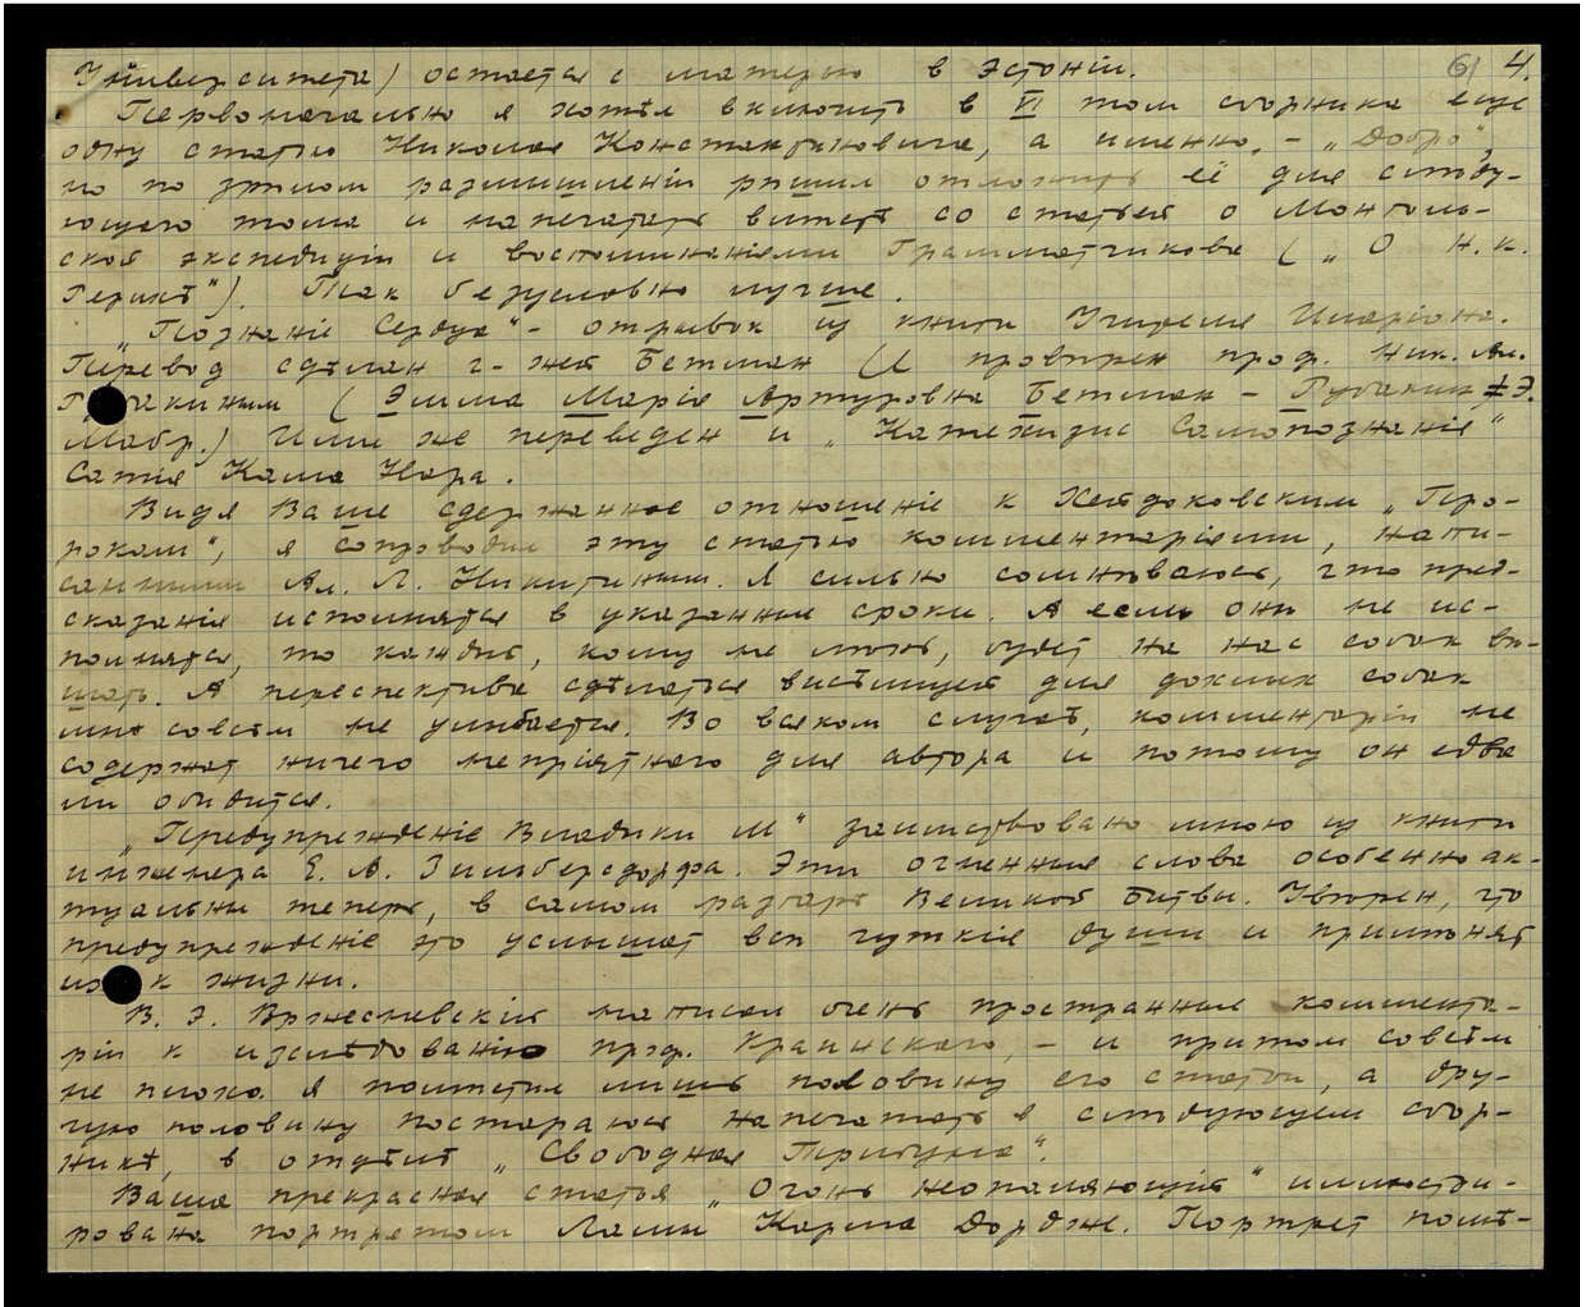 Университета) остается с матерью в Эстонiи. 61 4.
Первоначально я хотѣл включить в VI том сборника еще
одну статью Николая Константиновича, а именно, – „Добро",
но по зрѣлом размышленiи рѣшил отложить её для слѣду-
ющего тома и напечатать вмѣстѣ со статьей о Монголь-
ской экспедицiи и воспоминанiями Грамматчикова („О Н.К.
Рерихѣ"). Так безусловно лучше.
„Познанiе Сердца" – отрывок из книги Учителя Илариона.
Перевод сдѣлан г-жей Бетман (и провѣрен проф. Ник. Ал.
Рубакиным (Эмма Марiя Артуровна Бетман – Рубакин Э.
Мабр.) Ими же переведен и „Катехизис Самопознанiя"
Сатiя Кама Нара.
Видя Ваше сдержанное отношенiе к Хейдоковским „Про-
рокам", я сопроводил эту статью комментарiями, напи-
санными Ал. Л. Никитиным. Я сильно сомнѣваюсь, что пред-
сказанiя исполнятся в указанные сроки. А если они не ис-
полнятся, то каждый, кому не лѣнь, будет на нас собак вѣ-
шать. А переспектива сдѣлаться висѣлицей для дохлых собак
мнѣ совсѣм не улыбается. Во всяком случаѣ, комментарiи не
содержат ничего непрiятнаго для автора и потому он едва
ли обидится.
„Предупрежденiе Владыки М" заимствовано мною из книги
инженера Е. А. Зильберсдорфа. Эти огненные слова особенно ак-
туальны теперь, в самом разгарѣ Великой Битвы. Увѣрен, что
предупрежденiе это услышат всѣ чуткiе души и примѣнят
их к жизни.
В. Э. Вржесневскiй написал очень пространные коммента-
рiи к изслѣдованiю проф. Краинскаго, – и притом совсѣм
не плохо. Я помѣстил лишь половину его статьи, а дру-
гую половину постараюсь напечатать в слѣдующем сбор-
никѣ, в отдѣлѣ „Свободная Трибуна".
Ваша прекрасная статья „Огонь неопаляющiй" иллюстри-
рована портретом Ламы Карма Дордже. Портрет помѣ-